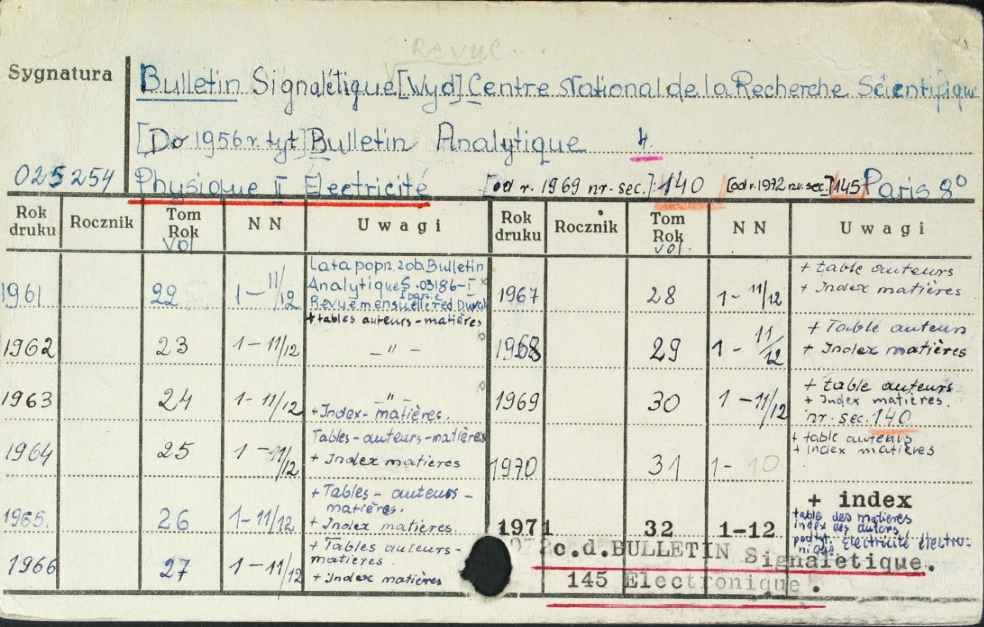 Revue...
Sygnatura
Bulletin Signalétique [Wyd] Centre National de la Recherche Scientifique
[Do 1956 r tyt] Bulletin Analytique 4.
025254 Physique II Electricité [od r. 1969 nr. sec.]: 140 [od r. 1972 nr. sec.] 145 Paris 8°
Rok druku Rocznik Tom Rok vol NN Uwagi Rok druku Rocznik Tom Rok vol. NN Uwagi
1961 22 1-11/12 Lata popr. zob. Bulletin
Analytique S. 03186-I
Revue mensuelle réd.
+ tables auteurs-matières
1962 23 1-11/12 -"-
1963 24 1-11/12 -"-
+ Index-matières.
1964 25 1-11/12 Tables-auteurs-matières
+ Index matières
1965. 26 1-11/12 + Tables-auteurs-
matières.
+ Index matières.
1966 27 1-11/12 + Tables auteurs-
matières.
+ Index matières
1967 28 1-11/12 + table auteurs
+ Index matières
1968 29 1-11/12 + Table auteurs
+ Index matières
1969 30 1-11/12 + table auteurs
+ Index matières.
nr. sec. 140
1970 31 1-10 + table auteurs
+ index matières
1971 32 1-12 + index
table des matières
index des auteurs
podtyt. électricité électro-
nique
c.d. BULLETIN Signaletique.
145 Electronique.